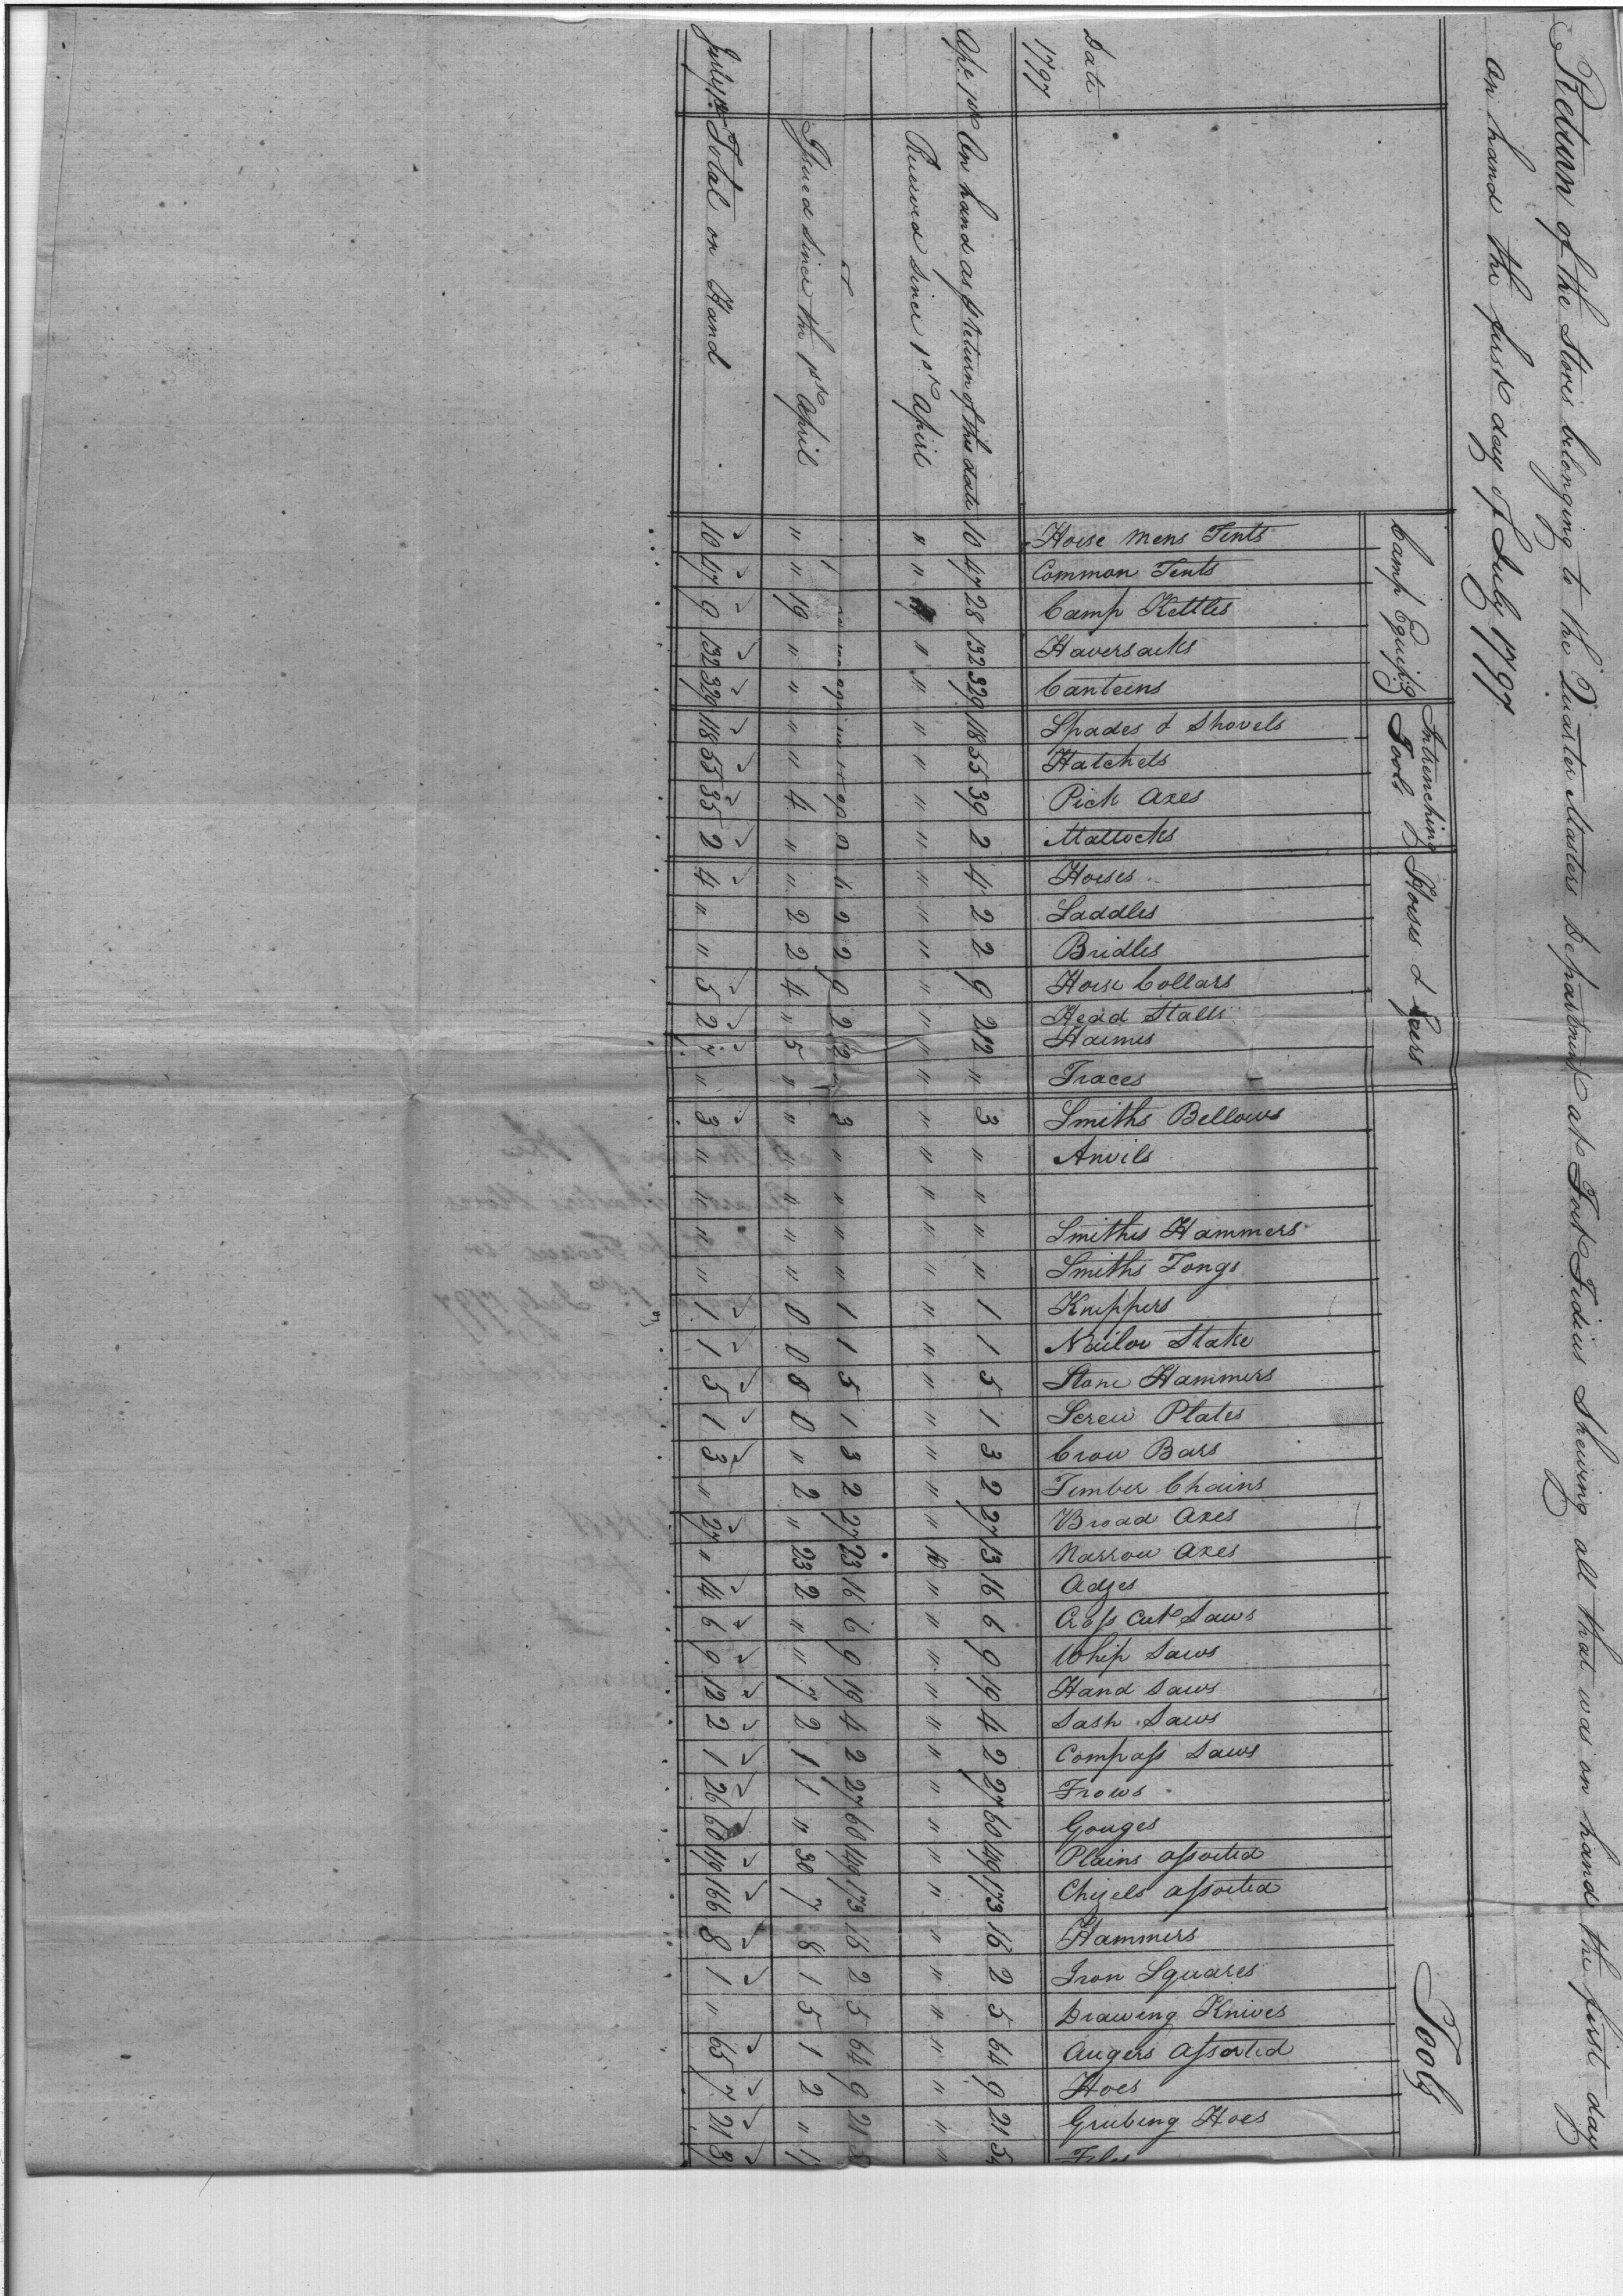 Return of the Stores belonging to the Quarter Masters Department at Fort Fidius Shewing all that was on hand the first day
on hand the first day of July 1797
Date
1797
Camp Equipg
Intrenching Tools
Horses & Geers
Tools
Horse mens Tents
Common Tents
Camp Kettles
Haversacks
Canteens
Spades & Shovels
Hatchets
Pick Axes
Mattocks
Horses
Saddles
Bridles
Horse Collars
Head Stalls
Haimes
Traces
Smiths Bellows
Anvils
Smiths Hammers
Smiths Tongs
Knippers
Nailor Stake
Stone Hammers
Screw Plates
Crow Bars
Timber Chains
Broad Axes
Narrow Axes
Adzes
Cross Cut Saws
Whip Saws
Hand Saws
Sash Saws
Compass Saws
Frows
Gouges
Plains assorted
Chizels assorted
Hammers
Iron Squares
Drawing Knives
Augers Assorted
Hoes
Grubing Hoes
Files
Apl. 1st On hand as pr return of this date 10 47 28 132 329 118 55 39 2 4 2 2 9 2 12 " 3 " " " " 1 1 5 1 3 2 27 13 16 6 9 19 4 2 27 60 49 173 16 2 5 64 9 21 5
Received since 1st April " " " " " " " " " " " " " " " " " " " " " " " " " " " 10 " " " " " " " " " " " " " " " "
2 2 9 2 12 " 3 " " " " 1 1 5 1 3 2 27 23 16 6 9 19 4 2 27 60 49 173 16 2 5 64 9 21
Issued since the 1st April " " 19 " " " " 4 " " 2 2 4 " 5 " " " " " " 0 0 0 0 " 2 " 23 2 " " 7 2 1 1 " 30 7 8 1 5 1 2 "
July 1st Total on Hand 10 47 9 132 329 118 55 35 2 4 " " 5 2 7 " 3 " " " " 1 1 5 1 3 " 27 " 14 6 9 12 2 1 26 60 19 166 8 1 " 65 7 21 3